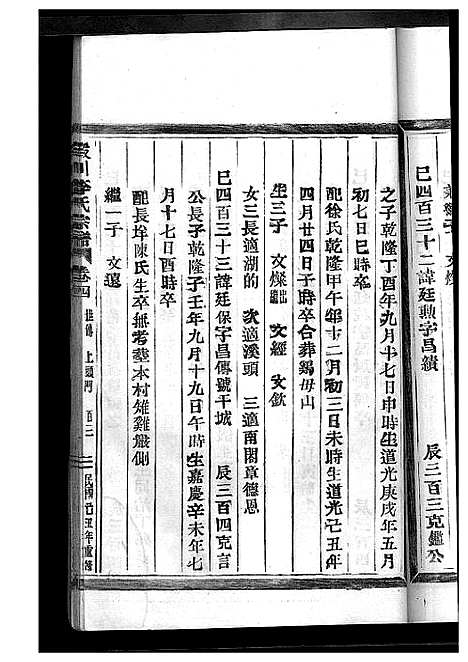 巳四百三十二諱廷勳字昌績　辰三百三克鑑公
之子乾隆丁酉年九月十七日申時生道光庚戌年五月
初七日巳時卒
配徐氏乾隆甲午年十二月初三日未時生道光己丑年
四月廿四日子時卒合葬錫毋山
生三子　文燦出繼　文經　文欽
女三長適湖的　次適溪頭　三適南閣章德恩
巳四百三十三諱廷保字昌傳號干城　辰三百四克言
公長子乾隆壬子年九月十九日午時生嘉慶辛未年七
月十七日酉時卒
配長垾陳氏生卒無考葬本村雉雞巖側
繼一子　文燦
李氏宗譜　卷四　上頭門　民國己丑年重修